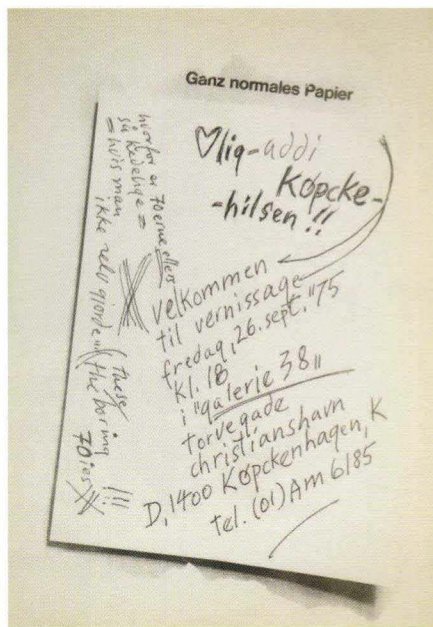 Ganz normales Papier
♡lig-addi
Køpcke-
-hilsen!!
velkommen
til vernissage
fredag, 26. sept. "75
kl. 18
i "galerie 38"
torvegade
christianshavn
D, 1400 Køpckenhagen, K
tel. (01) Am 6185
hvorfor er 70erne ellers
så kedelige =
= hvis man
ikke selv gjorde
(these
(the boring
70ies) !!!